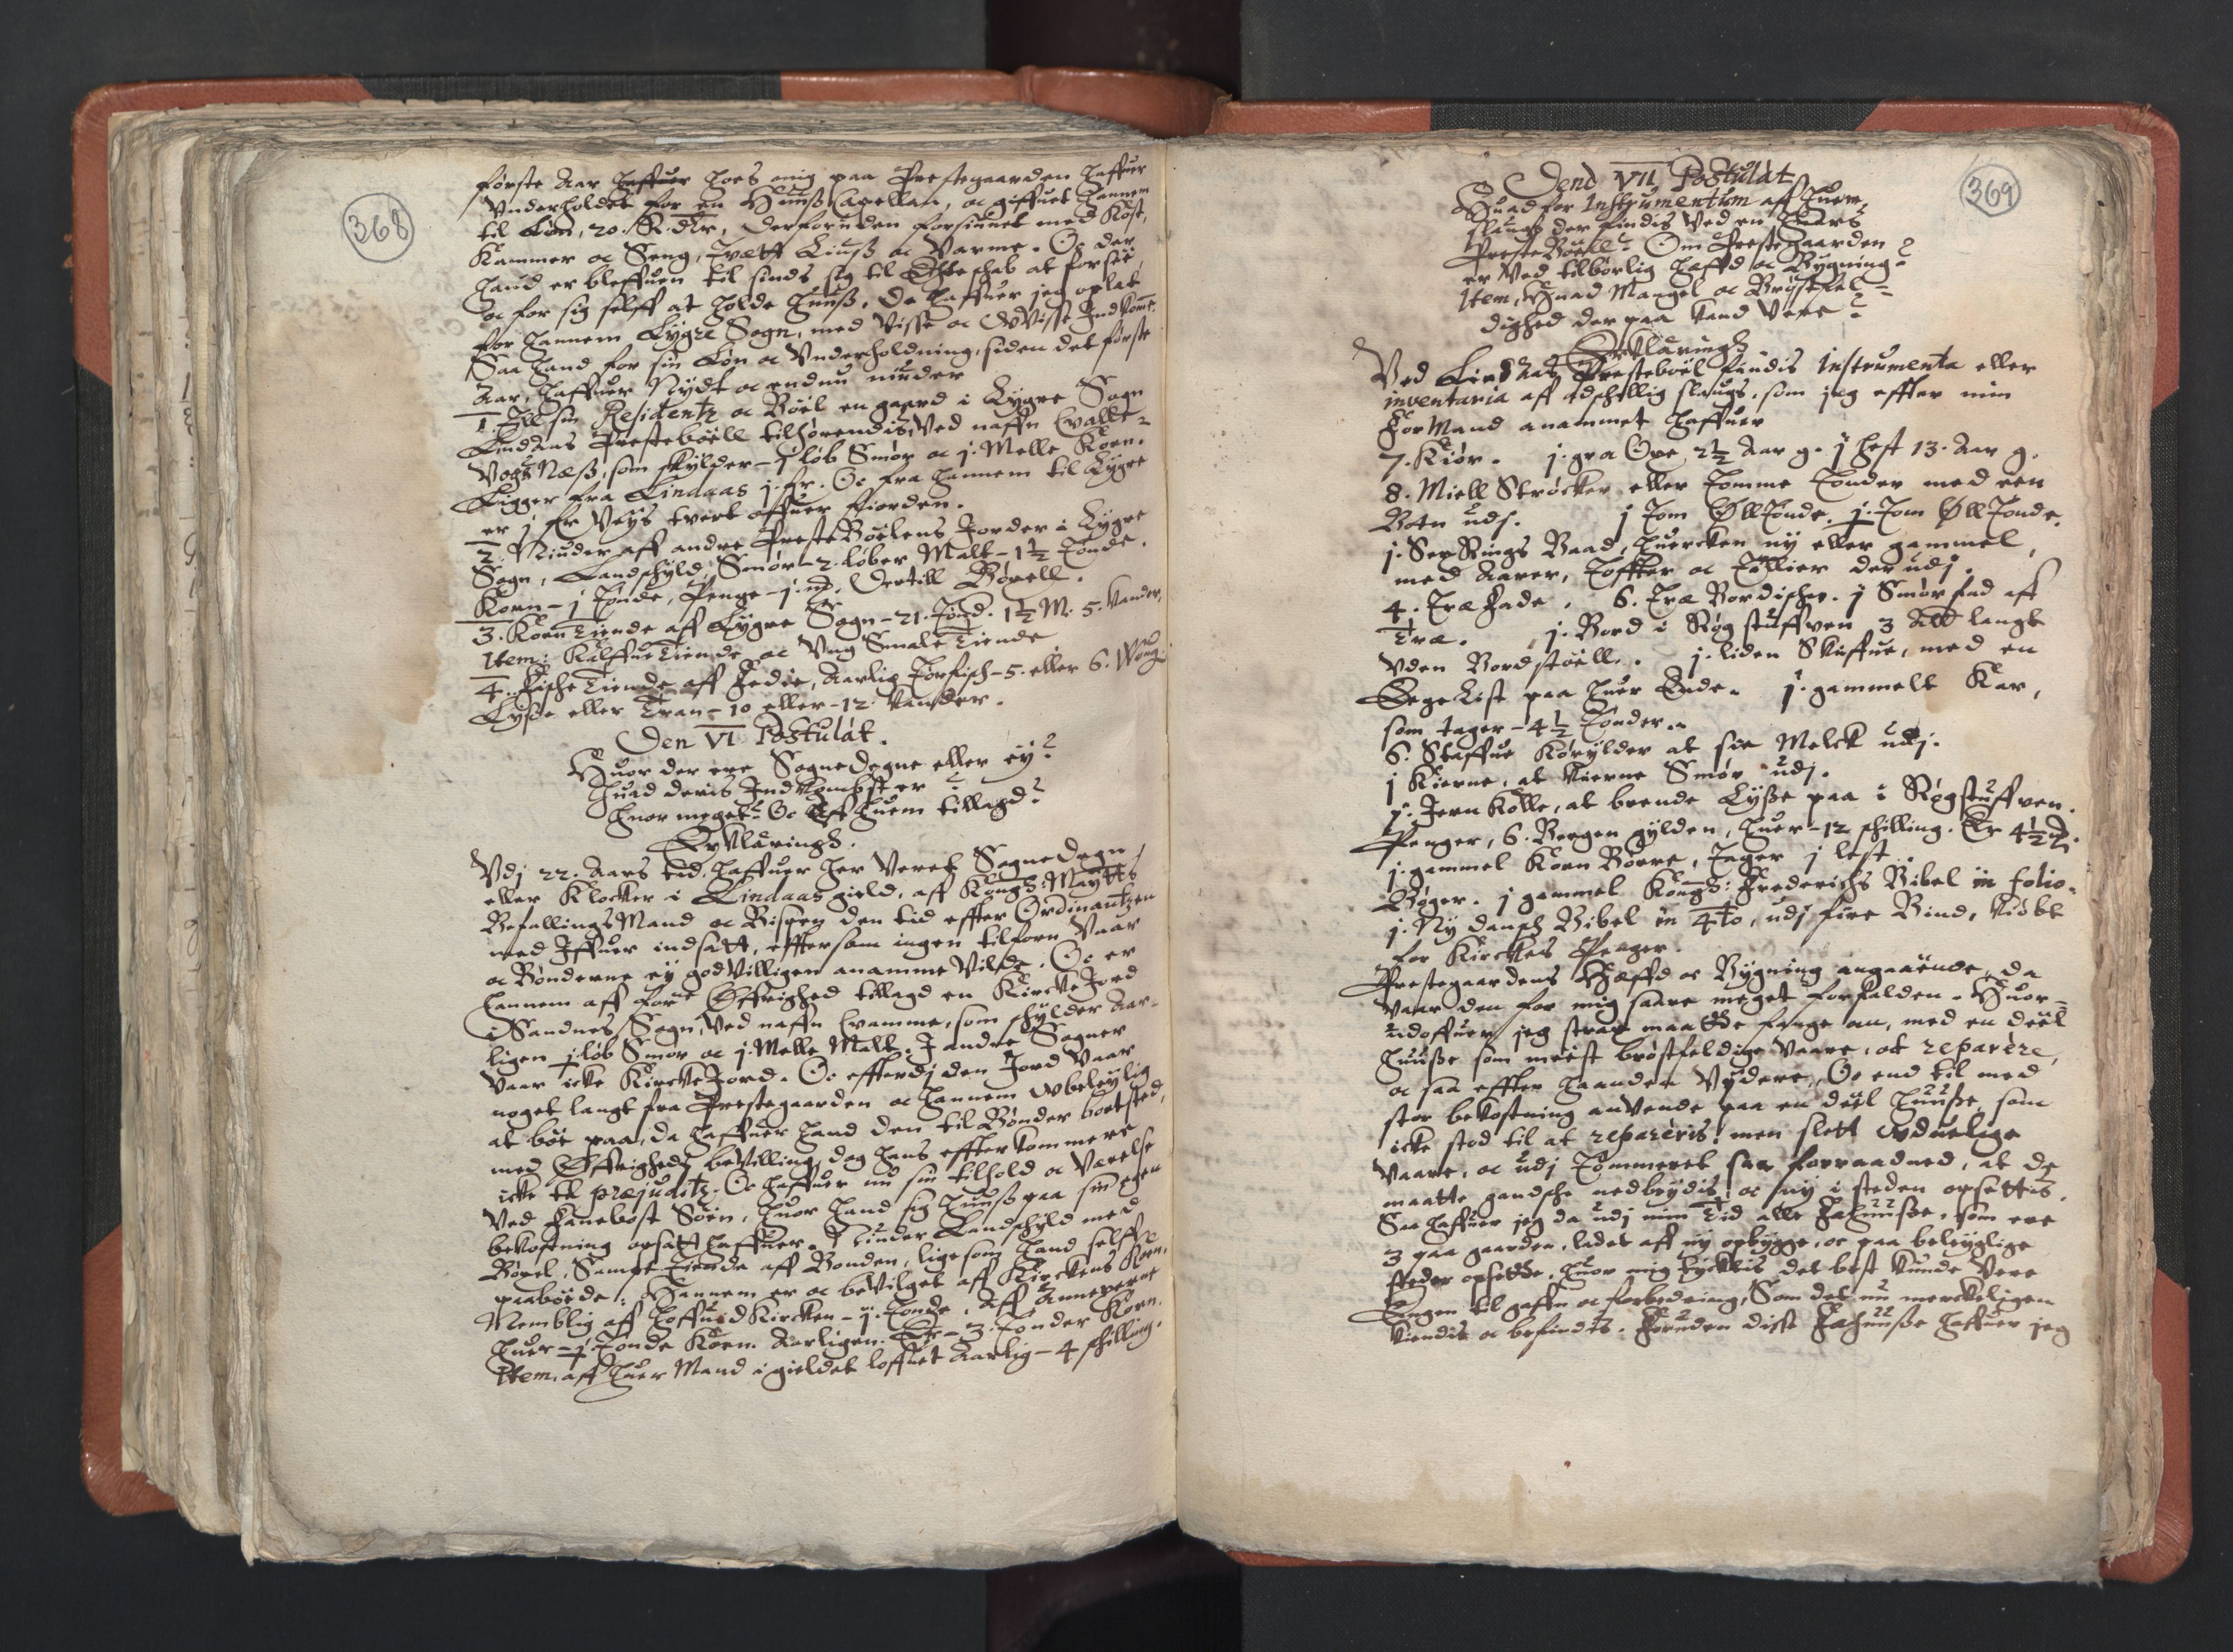 368
første Aar hoes mig paa Prestegaarden haffuer
Vnderholdet for en Huuß Capellan, oc giffuet hannem
til Løn, 20. R. dlr, derforuden forsiunet med Kost,
Kammer oc Seng, Tvætt Liuß oc Varme. Oc der
hand er bleffuen til sinds sig til Echteschab at forseë,
oc for sig selff at holde Huuß, da haffuer jeg oplat
for hannem Lygre Sogn, med Visse oc VVisse Indkomme.
Saa hand for sin Løn oc Vnderholdning, siden det første
Aar, haffuer Nydt oc endnu niuder
1. Till sin Residentz oc Böel en gaard i Lygre Sogn
Lindaas Prestebøell tilhørendis, Ved naffn
Næß, som skylder - j løb Smør oc j. Melle Korn.
Ligger fra Lindaas j. fr. Oc fra hannem til Lygre
er j fr Veys tvert offuer fiorden.
2. Niuder aff andre PresteBøelens Jorder i Lygre
Sogn, Landschyld, Smør - 2. løber Malt - 1½ Tønde.
Korn - j Tønde, Penge - j. Dertill Böxell.
3. KornTiende aff Lygre Sogn - 21. Tønd. 1½ M. 5. Vander,
Item, KalffueTiende oc Vng SmaleTiende
4. FischeTiende aff Fedie, Aarlig Törfisch - 5. eller 6. Woug
Lyße eller Tran - 10 eller - 12. Kander.
Den VI Postulat.
Huor der ere SogneDegne eller ey?
Huad deris Indkombst er?
Huor meget? Oc Aff huem tillagd?
Erklæringh.
Vdj 22. Aars tid haffuer her Veret SogneDegn
eller Klocker i Lindaas gield, aff Kongh: Maytts
BefallingsMand oc Bispen den tid effter Ordinantzen
med Iffuer indsatt, efftersom ingen tilforn Vaar
oc Bønderne ey godVilligen anamme Vilde. Oc er
hannem aff forne Øffrighed tillagd en KirckeJord
i Sandnes Sogn, Ved naffn Evamme, som schylder Aar-
ligen j. løb Smør oc j. Melle Malt. I andre Sogner
Vaar icke KirckeJord. Oc effterdj den Jord Vaar
noget langt fra Prestegaarden oc hannem Vbeleylig
at böe paa, da haffuer hand den til Bønder bortsted,
med Øffrigheds beVilling, dog hans effterkommere
icke til præjuditz. Oc haffuer nu sin tilhold oc Værelse
Ved Fanebost Söen, huor hand sig Huuß paa sin egen
bekostning opsatt haffuer. Niuder Landschyld med
Böxel, Sampt Tiende aff Bonden, ligesom hand selff
paabøede. Hannem er oc beVilget aff Kirckens Korn,
Nemblig aff HoffuidKircken - j. Tønde. Aff Annexerne
huer - j. Tønde Korn. Aarligen. Er - 3. Tønder Korn.
Item, aff huer Mand i gieldet loffuet Aarlig - 4 schilling.
369
Dend VII Postulat
Huad for Instrumentum aff huem,
slaugs der findis Ved en huers
PresteBöell? Om PresteGaarden
er Ved tilbörlig haffd oc Bygning?
Item, Huad Mangel oc Bröstfel=
dighed der paa kand Vere?
Erklæringh
Ved Lindaas Prestebøel findis Instrumenta eller
inventaria aff adschellig slaugs, som jeg effter min
ForMand anammet haffuer
7. Kiør. j. gra Øxe 2½ Aar g. j hest 13. Aar g.
8. Miell Strøcker eller Tomme Tønder med een
Botn udj. j Tom ØllTønde. j. Tom ØllTønde.
j. SexRings Baad, huercken ny eller gammel,
med Aarer, Toffter oc Tillier der udj.
4. Træ Fade, 6. Træ Bordischer. j Smörfad aff
Træ. j. Bord i Røgstuffven 3 Alt langt
Vden Bordstoell. j. liden Skuffue, med en
EegeList paa huer Ende. j. gammelt Kar,
som tager - 4½ Tønder.
6. Staffue Körylder at sie Melck udj.
j Kierne, at Kierne Smør udj.
j. JernKolle, at brende Lyße paa i Røgstuffven.
Penger, 6. Bergen gylden, huer - 12 schilling. Er 4½
j. gammel Korn Børre, Tager j lest
Bøger. j gammel Kongh: Frederichs Bibel in folio.
j. Ny dansch Bibel in 4to, udj fire Bind, Kiøbt
for Kirckes Penger.
Prestegaardens Hæffd oc Bygning angaaënde, da
Vaar den for mig saare meget forfalden. Huor-
udoffuer jeg strax maatte fange an, med en deel
huuße som meest bröstfeldige Vaare, at reparere,
oc saa effter haanden Vydere, Oc end til med
stor bekostning anVende paa en deel huuße, som
icke stod til at repareris, men slett Vduelige
Vaare, oc udj Tömmeret saa forraadned, at de
maatte gandsche nedbrydis, oc ny i steden opsettis.
Saa haffuer jeg da udj min Tid alle Fæhuuße, som ere
3 paa gaarden, ladet aff ny opbygge, oc paa beleylige
steder opsette, huor mig tycktis det best kunde Vere
Engen til gaffn oc forbedring, Som det nu merckeligen
Kiendis oc befindis. Foruden disse Fæhuuße haffuer jeg